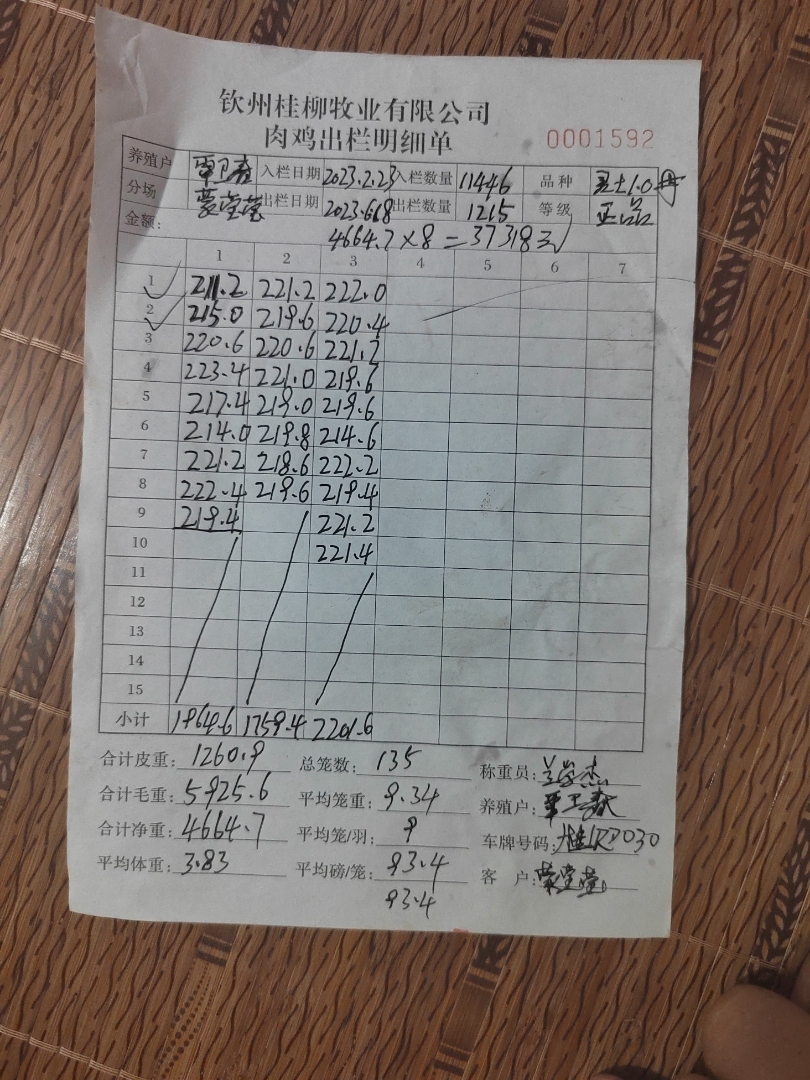 钦州桂柳牧业有限公司
肉鸡出栏明细单 0001592
养殖户 入栏日期 2023.2.23 入栏数量 11446 品种 土1.0母
分场 蒙堂莹 出栏日期 2023.6.8 出栏数量 1215 等级 正品
金额: 4664.7×8=37318元
1 2 3 4 5 6 7
1 211.2 221.2 222.0
2 215.0 219.6 220.4
3 220.6 220.6 221.2
4 223.4 221.0 219.6
5 217.4 219.0 219.6
6 214.0 219.8 214.6
7 221.2 218.6 222.2
8 222.4 219.6 219.4
9 219.4 221.2
10 221.4
11
12
13
14
15
小计 1964.6 1759.4 2201.6
合计皮重: 1260.9 总笼数: 135 称重员:
合计毛重: 5925.6 平均笼重: 9.34 养殖户:
合计净重: 4664.7 平均笼/羽: 9 车牌号码:
平均体重: 3.83 平均磅/笼: 93.4 客户: 蒙堂莹
93.4